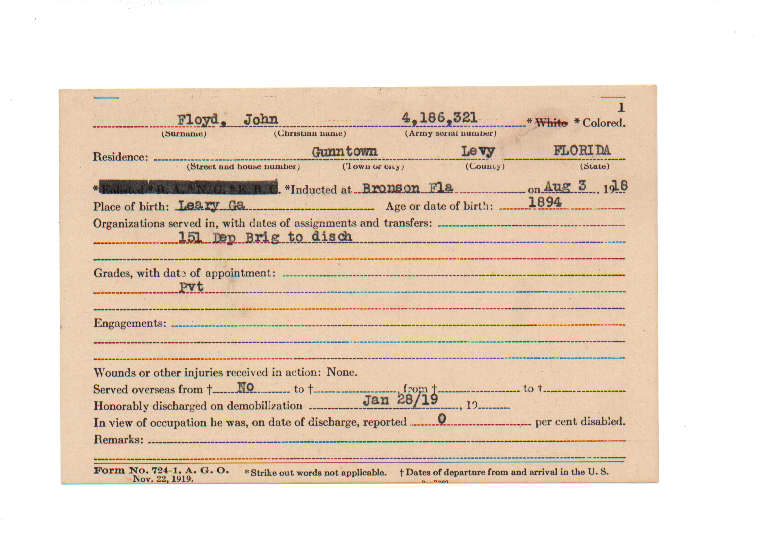 1
Floyd, John 4,186,321 * White * Colored.
(Surname) (Christian name) (Army serial number)
Residence: Gunntown Levy FLORIDA
(Street and house number) (Town or city) (County) (State)
* Enlisted * R. A. * N. G. * E. R. C. *Inducted at Bronson Fla on Aug 3, 1918
Place of birth: Leary Ga Age or date of birth: 1894
Organizations served in, with dates of assignments and transfers:
151 Dep Brig to disch
Grades, with date of appointment:
Pvt
Engagements:
Wounds or other injuries received in action: None.
Served overseas from † No to † , from † to †
Honorably discharged on demobilization Jan 28/19, 19
In view of occupation he was, on date of discharge, reported 0 per cent disabled.
Remarks:
Form No. 724-1, A. G. O. *Strike out words not applicable. † Dates of departure from and arrival in the U. S.
Nov. 22, 1919.